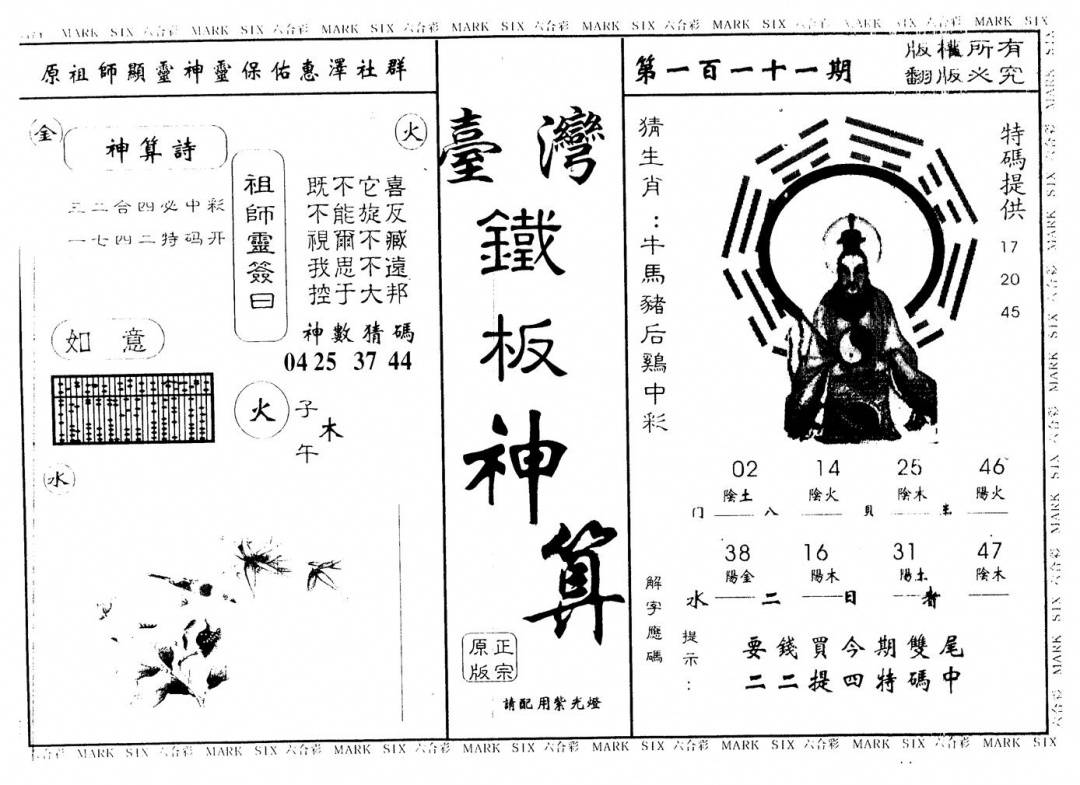 六合彩 MARK SIX 六合彩 MARK SIX 六合彩 MARK SIX 六合彩 MARK SIX 六合彩 MARK SIX 六合彩 MARK SIX 六合彩 MARK SIX 六合彩 MARK SIX
原祖師顯靈神靈保佑惠澤社群
金
火
神算詩
三二合四必中彩
一七四二特码开
祖師靈簽曰
既不它喜
不能旋反
視爾不臧
我思不遠
控于大邦
神數猜碼
04 25 37 44
如意
火
子
木
午
水
臺灣
鐵
板
神
算
正宗
原版
請配用紫光燈
第一百一十一期
版權所有
翻版必究
猜生肖：牛馬豬后鷄中彩
特碼提供
17
20
45
02 14 25 46
陰土 陰火 陰木 陽火
门 八 貝 半
38 16 31 47
陽金 陽木 陽土 陰木
水 二 日 者
解字應碼
提示：
要錢買今期雙尾
二二提四特碼中
六合彩 MARK SIX 六合彩 MARK SIX 六合彩 MARK SIX 六合彩 MARK SIX 六合彩 MARK SIX 六合彩 MARK SIX 六合彩 MARK SIX 六合彩 MARK SIX